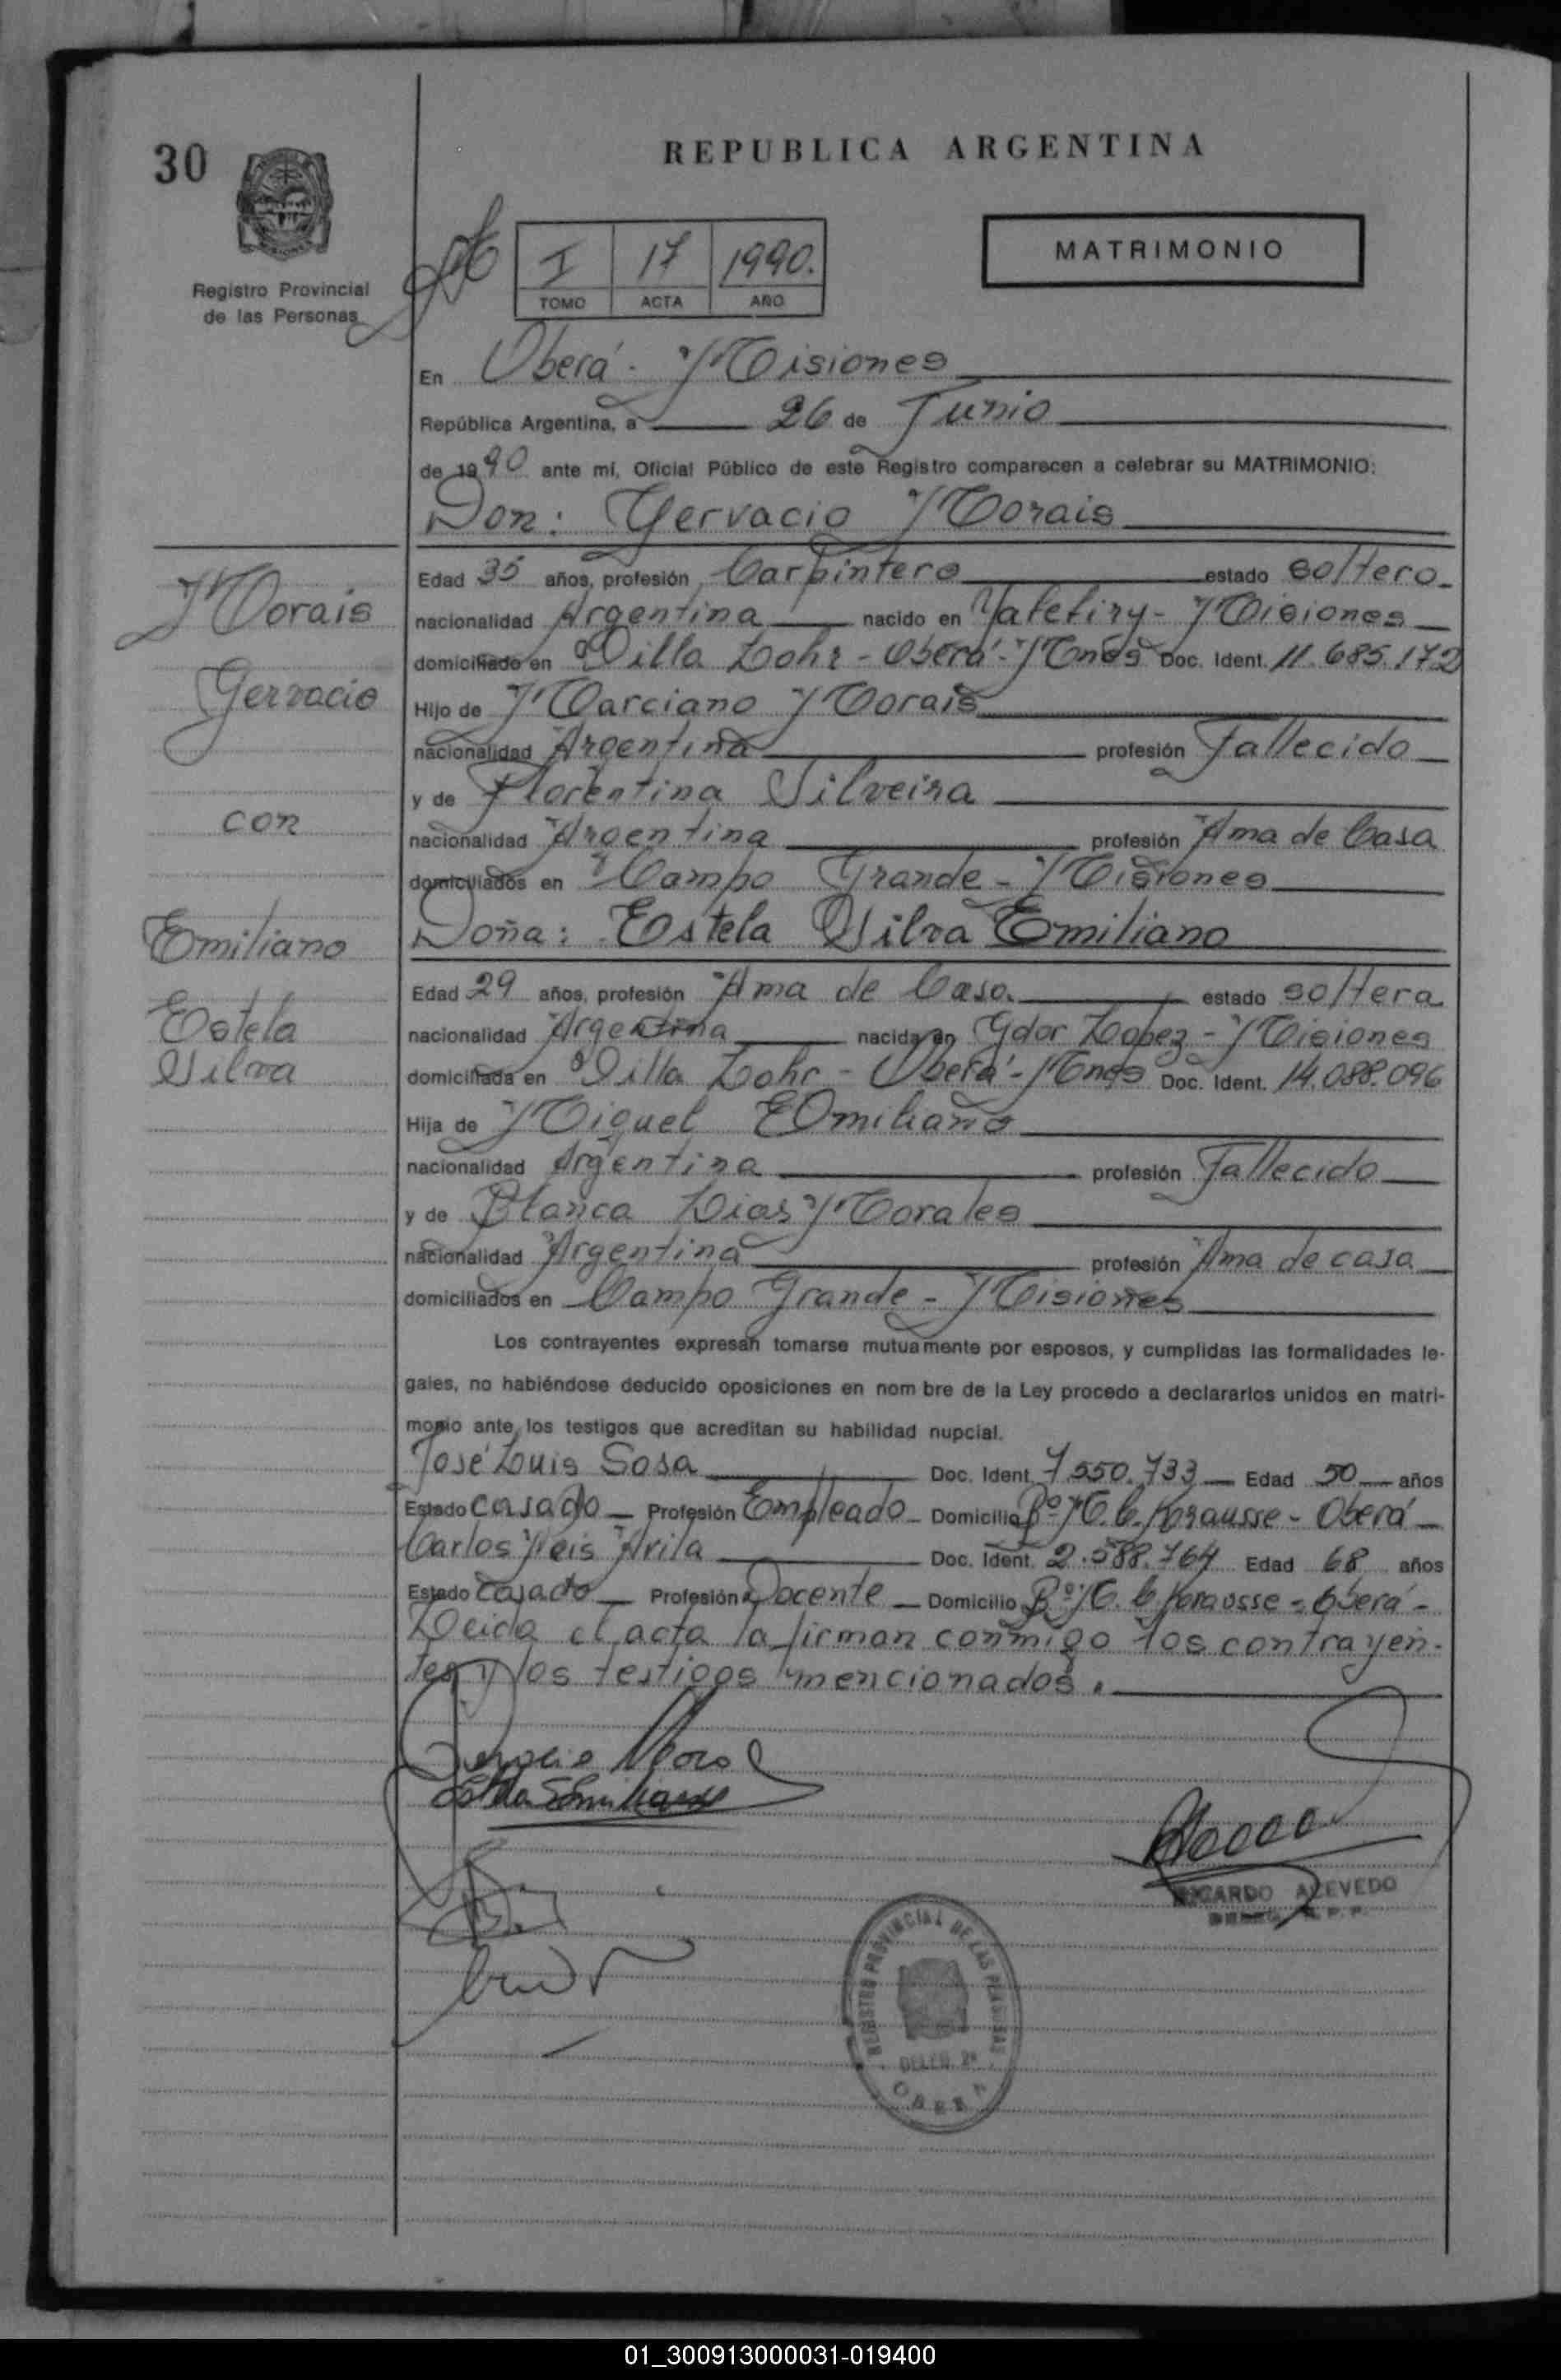 30
REPUBLICA ARGENTINA
MATRIMONIO
I 17 1990.
TOMO ACTA AÑO
Registro Provincial
de las Personas
En Oberá - Misiones
República Argentina, a 26 de Junio
de 1990 ante mí, Oficial Público de este Registro comparecen a celebrar su MATRIMONIO:
Don: Gervacio Morais
Edad 35 años, profesión Carpintero estado soltero
nacionalidad Argentina nacido en - Misiones
domiciliado en Villa Lohr - Oberá - Mnes Doc. Ident. 11.685.172
Hijo de Marciano Morais
nacionalidad Argentina profesión Fallecido
y de Florentina Silveira
nacionalidad Argentina profesión Ama de Casa
domiciliados en Campo Grande - Misiones
Doña: Estela Silva Emiliano
Edad 29 años, profesión Ama de Casa estado soltera
nacionalidad Argentina nacida en Gdor Lopez - Misiones
domiciliada en Villa Lohr - Oberá - Mnes Doc. Ident. 14.088.096
Hija de Miguel Emiliano
nacionalidad Argentina profesión Fallecido
y de Blanca Dias Morales
nacionalidad Argentina profesión Ama de casa
domiciliados en Campo Grande - Misiones
Los contrayentes expresan tomarse mutuamente por esposos, y cumplidas las formalidades le-
gales, no habiéndose deducido oposiciones en nom bre de la Ley procedo a declararlos unidos en matri-
monio ante los testigos que acreditan su habilidad nupcial.
José Luis Sosa Doc. Ident. 7.550.733 Edad 50 años
Estado casado Profesión Empleado Domicilio Bº M.C. Krausse - Oberá
Carlos Neis Avila Doc. Ident. 2.588.764 Edad 68 años
Estado casado Profesión Docente Domicilio Bº M.C. Krausse - Oberá -
Leida el acta la firman conmigo los contrayen-
tes y los testigos mencionados.
Morais
Gervacio
con
Emiliano
Estela
Silva
Estela Emiliano
RICARDO ACEVEDO
REGISTRO PROVINCIAL DE LAS PERSONAS
DELEG. 2ª
OBERA
01_300913000031-019400